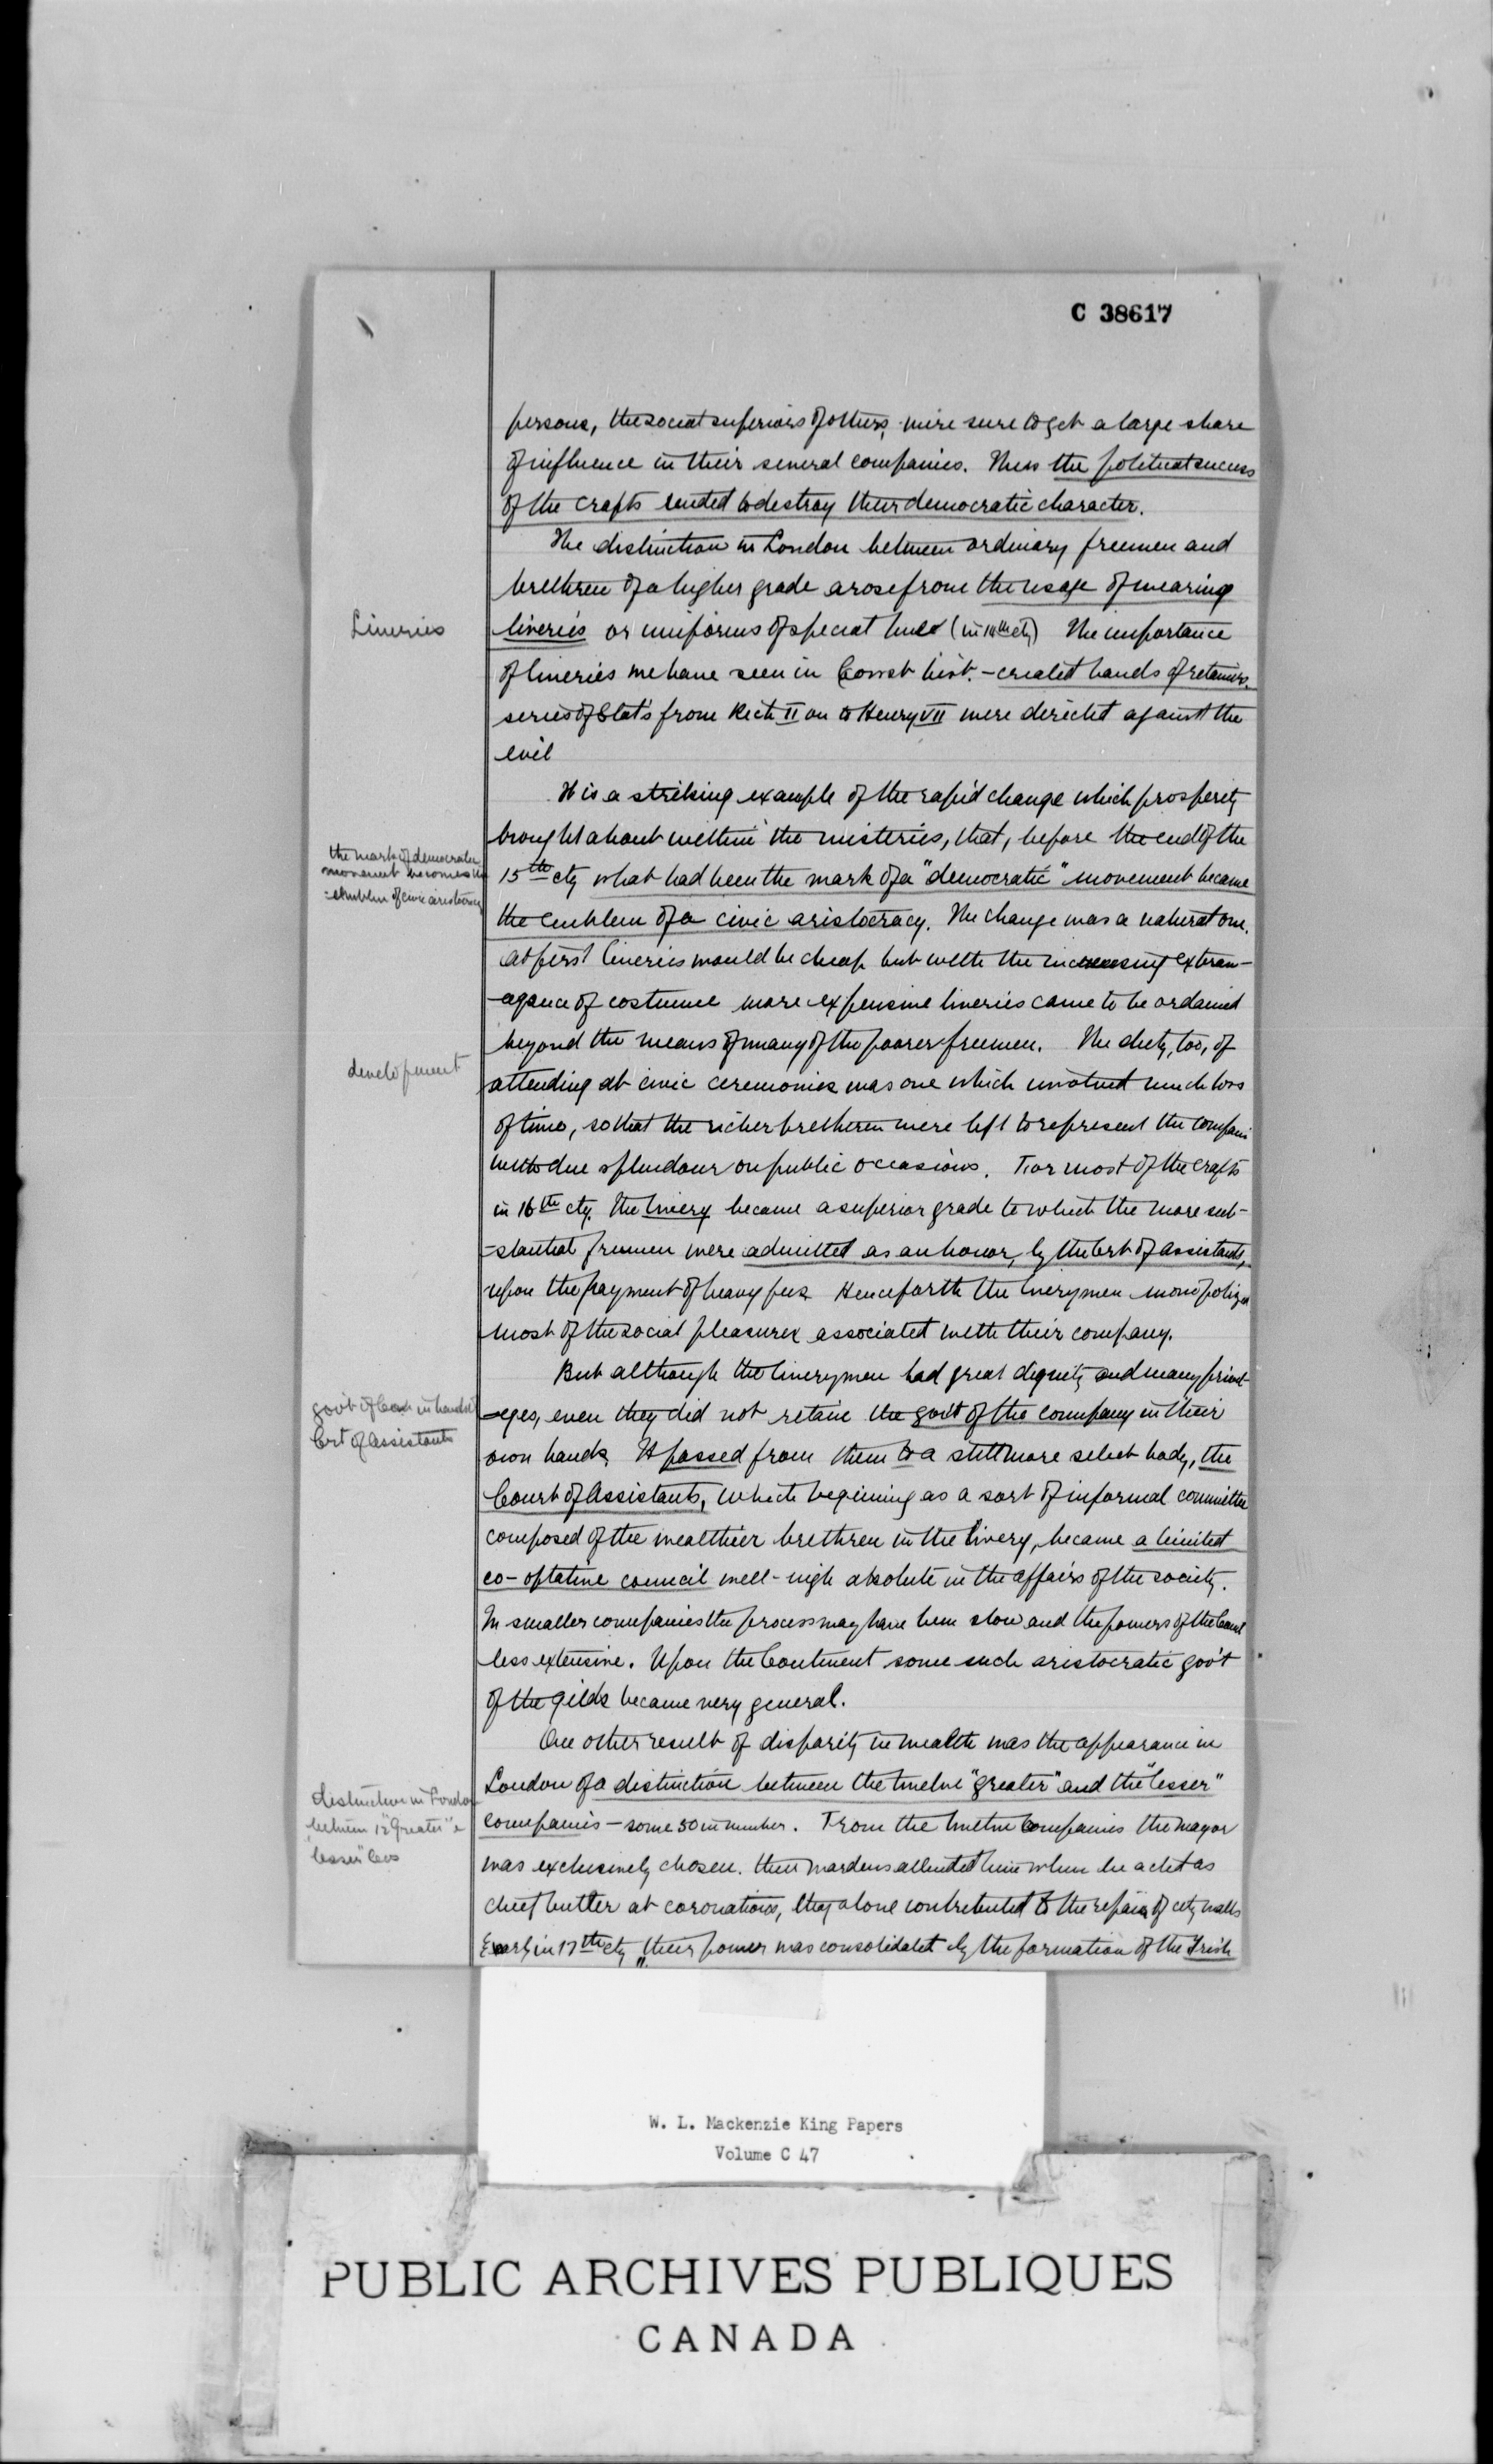 C 38617
persons, the social superiors of others, were sure to get a large share
of influence in their several companies. Thus the political success
of the crafts tended to destroy their democratic character.
The distinction in London between ordinary freemen and
brethren of a higher grade arose from the usage of wearing
Liveries
liveries or uniforms of special hues (in 14th cty) The importance
of liveries we have seen in Const hist. - created bands of retainers.
series of Stat's from Rich II on to Henry VII were directed against the
evil
It is a striking example of the rapid change which prosperity
brought about within the misteries, that, before the end of the
the mark of democratic
movement becomes the
-emblem of civic aristocracy
15th cty what had been the mark of a "democratic" movement became
the emblem of a civic aristocracy. The change was a natural one.
At first liveries would be cheap but with the increasing extrav-
-agance of costume more expensive liveries came to be ordained
beyond the means of many of the poorer freemen. The duty, too, of
development
attending at civic ceremonies was one which involved much loss
of time, so that the richer bretheren were left to represent the compani
with due splendour on public occasions. For most of the crafts
in 16th cty. the livery became a superior grade to which the more sub-
-stantial freemen were admitted as an honor, by the Crt of Assistants,
upon the payment of heavy fees. Henceforth the liverymen monopolized
most of the social pleasures associated with their company.
But although the liverymen had great dignity and many privil-
govt of Com in hands of
Crt of Assistants
-eges, even they did not retain the gov't of the company in their
own hands. It passed from them to a still more select body, the
Court of Assistants, which begining as a sort of informal committee
composed of the wealthier brethren in the livery, became a limited
co-optative council well-nigh absolute in the affairs of the society.
In smaller companies the process may have been slow and the powers of the Court
less extensive. Upon the Continent some such aristocratic gov't
of the gilds became very general.
One other result of disparity in wealth was the appearance in
distinction in London
between 12 "Greater" &
"lesser" Cos
London of a distinction between the twelve "greater" and the "lesser"
companies - some 50 in number. From the twelve companies the mayor
was exclusively chosen. their wardens attended him when he acted as
chief butler at coronations, they alone contributed to the repairs of city walls
Early in 17th cty their power was consolidated by the formation of the Irish
W. L. Mackenzie King Papers
Volume C 47
PUBLIC ARCHIVES PUBLIQUES
CANADA